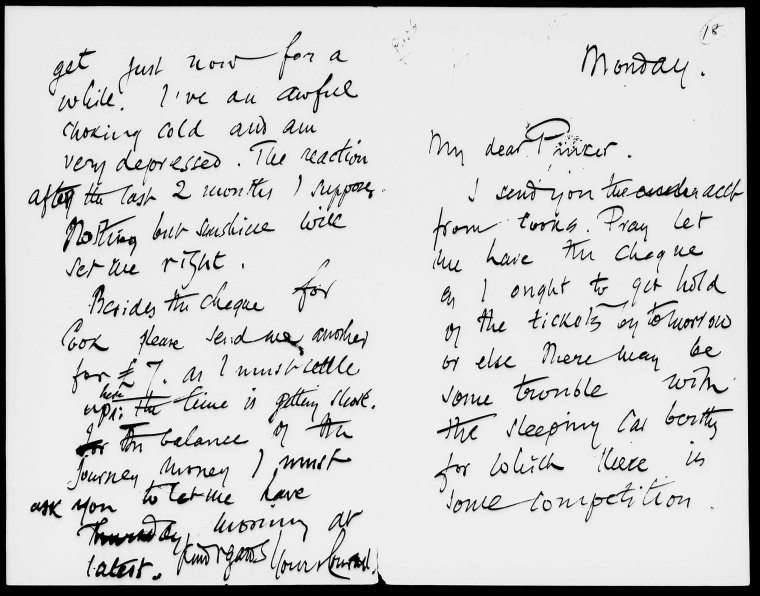 18
Monday.
My dear Pinker.
I send you the acct
from Cooks. Pray let
me have the cheque
as I ought to get hold
of the tickets by tomorrow
or else there may be
some trouble with
the sleeping car berths
for which there is
some competition.
get just now for a
while. I've an awful
choking cold and am
very depressed. The reaction
after the last 2 months I suppose.
Nothing but sunshine will
set me right.
Besides the cheque for
Cook please send me another
for £7. as I must settle
up here: the time is getting short.
for the balance of the
journey money I must
ask you to let me have
Thursday morning at
latest. Kind regards Yours Conrad.